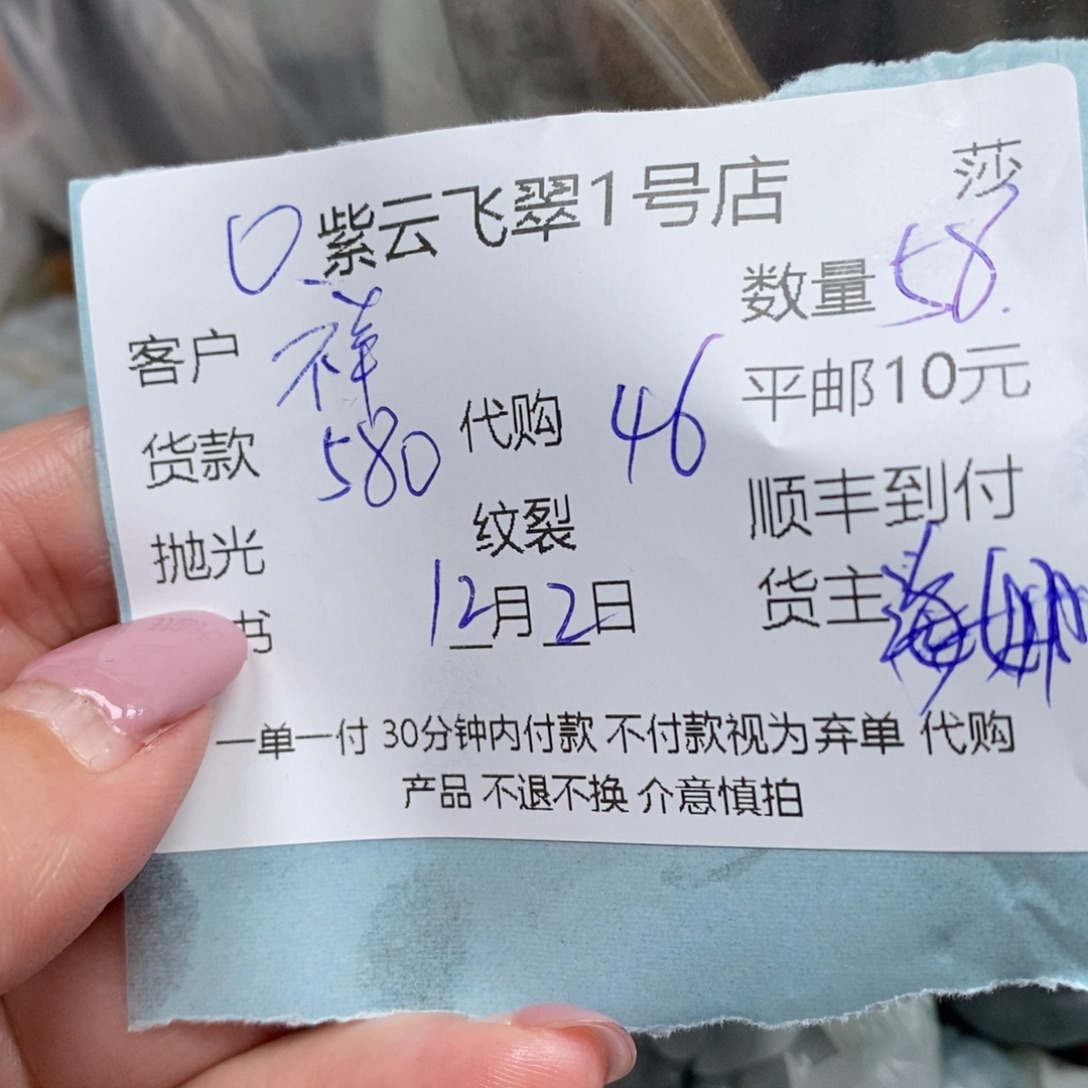 紫云飞翠1号店 莎
数量 58.
客户 祥
平邮10元
货款 580 代购 46
顺丰到付
抛光 纹裂
货主
书 12月2日
一单一付 30分钟内付款 不付款视为弃单 代购
产品 不退不换 介意慎拍